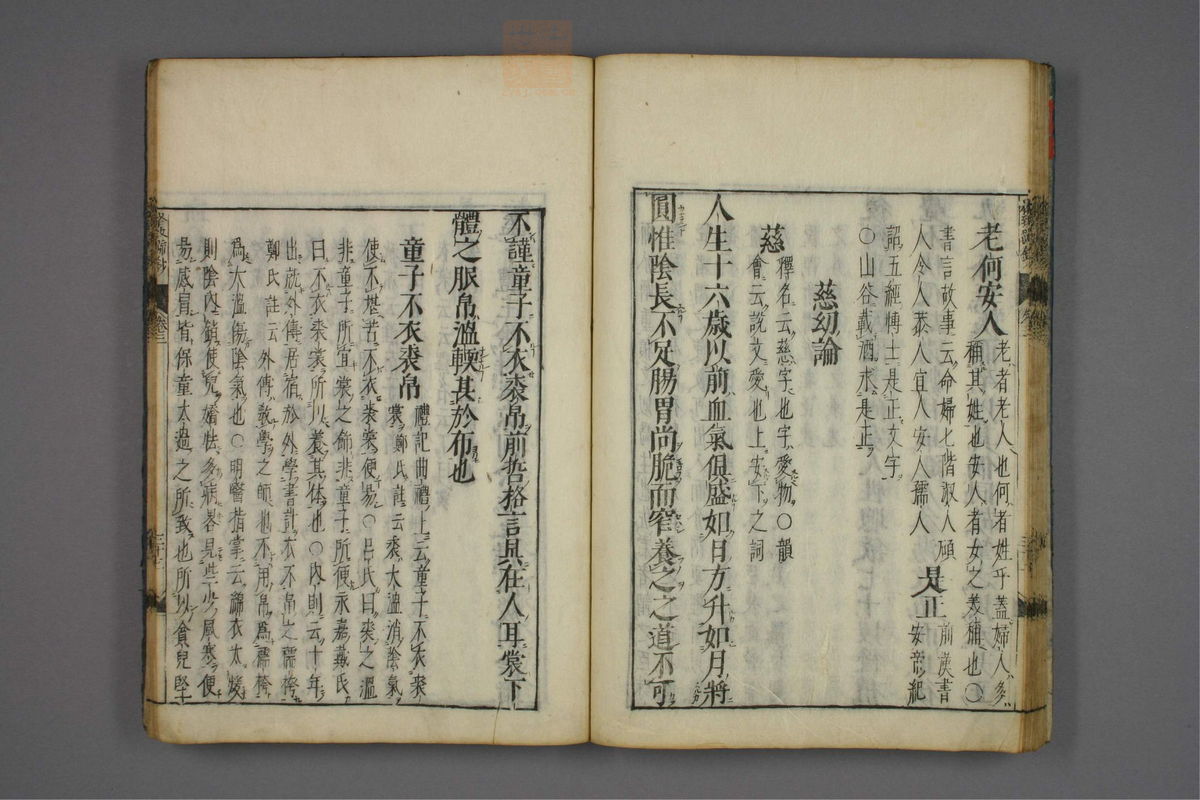 老何安人老者老人也何者姓乎蓋婦人多
稱其姓也安人者有女之義稱也〇
書言故事云命婦七階淑人碩
人令人恭人宜人安人孺人 是正前漢書
安帝紀
詔五經博士是正文字
〇山谷載酒來是正
慈幼論
慈釋名云慈字也字愛物〇韻
會云說文愛也上安下之詞
人生十六歲以前血氣俱盛如日方升如月將
圓惟陰長不足腸胃尚脆而窄養之之道不可
不謹童子不衣裘帛前哲格言具在人耳裳下
體之服帛溫輭甚於布也
童子不衣裘帛禮記曲禮上云童子不衣裘
裳鄭氏註云裘大溫消陰氣
使不堪苦不衣裘裳便易〇呂氏曰裘之溫
非童子所宜裳之飾非童子所便永嘉戴氏
曰不衣裘裳所以養其体也〇內則云十年
出就外傅居宿於外學書計衣不帛之襦袴
鄭氏註云外傅敎學之師也不用帛爲襦袴
爲大溫傷陰氣也〇明醫指掌云綿衣太煖
則陰內銷使兒嬌怯多病畧見些少風寒便
易感冒皆保童太過之所致也所以貧兒堅
卷三